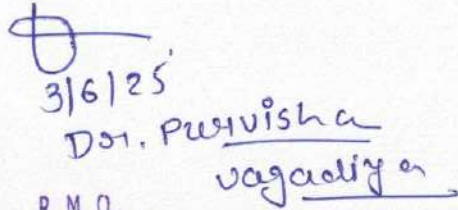 3/6/25
Dr. Purvisha
vagadiya
R.M.O.